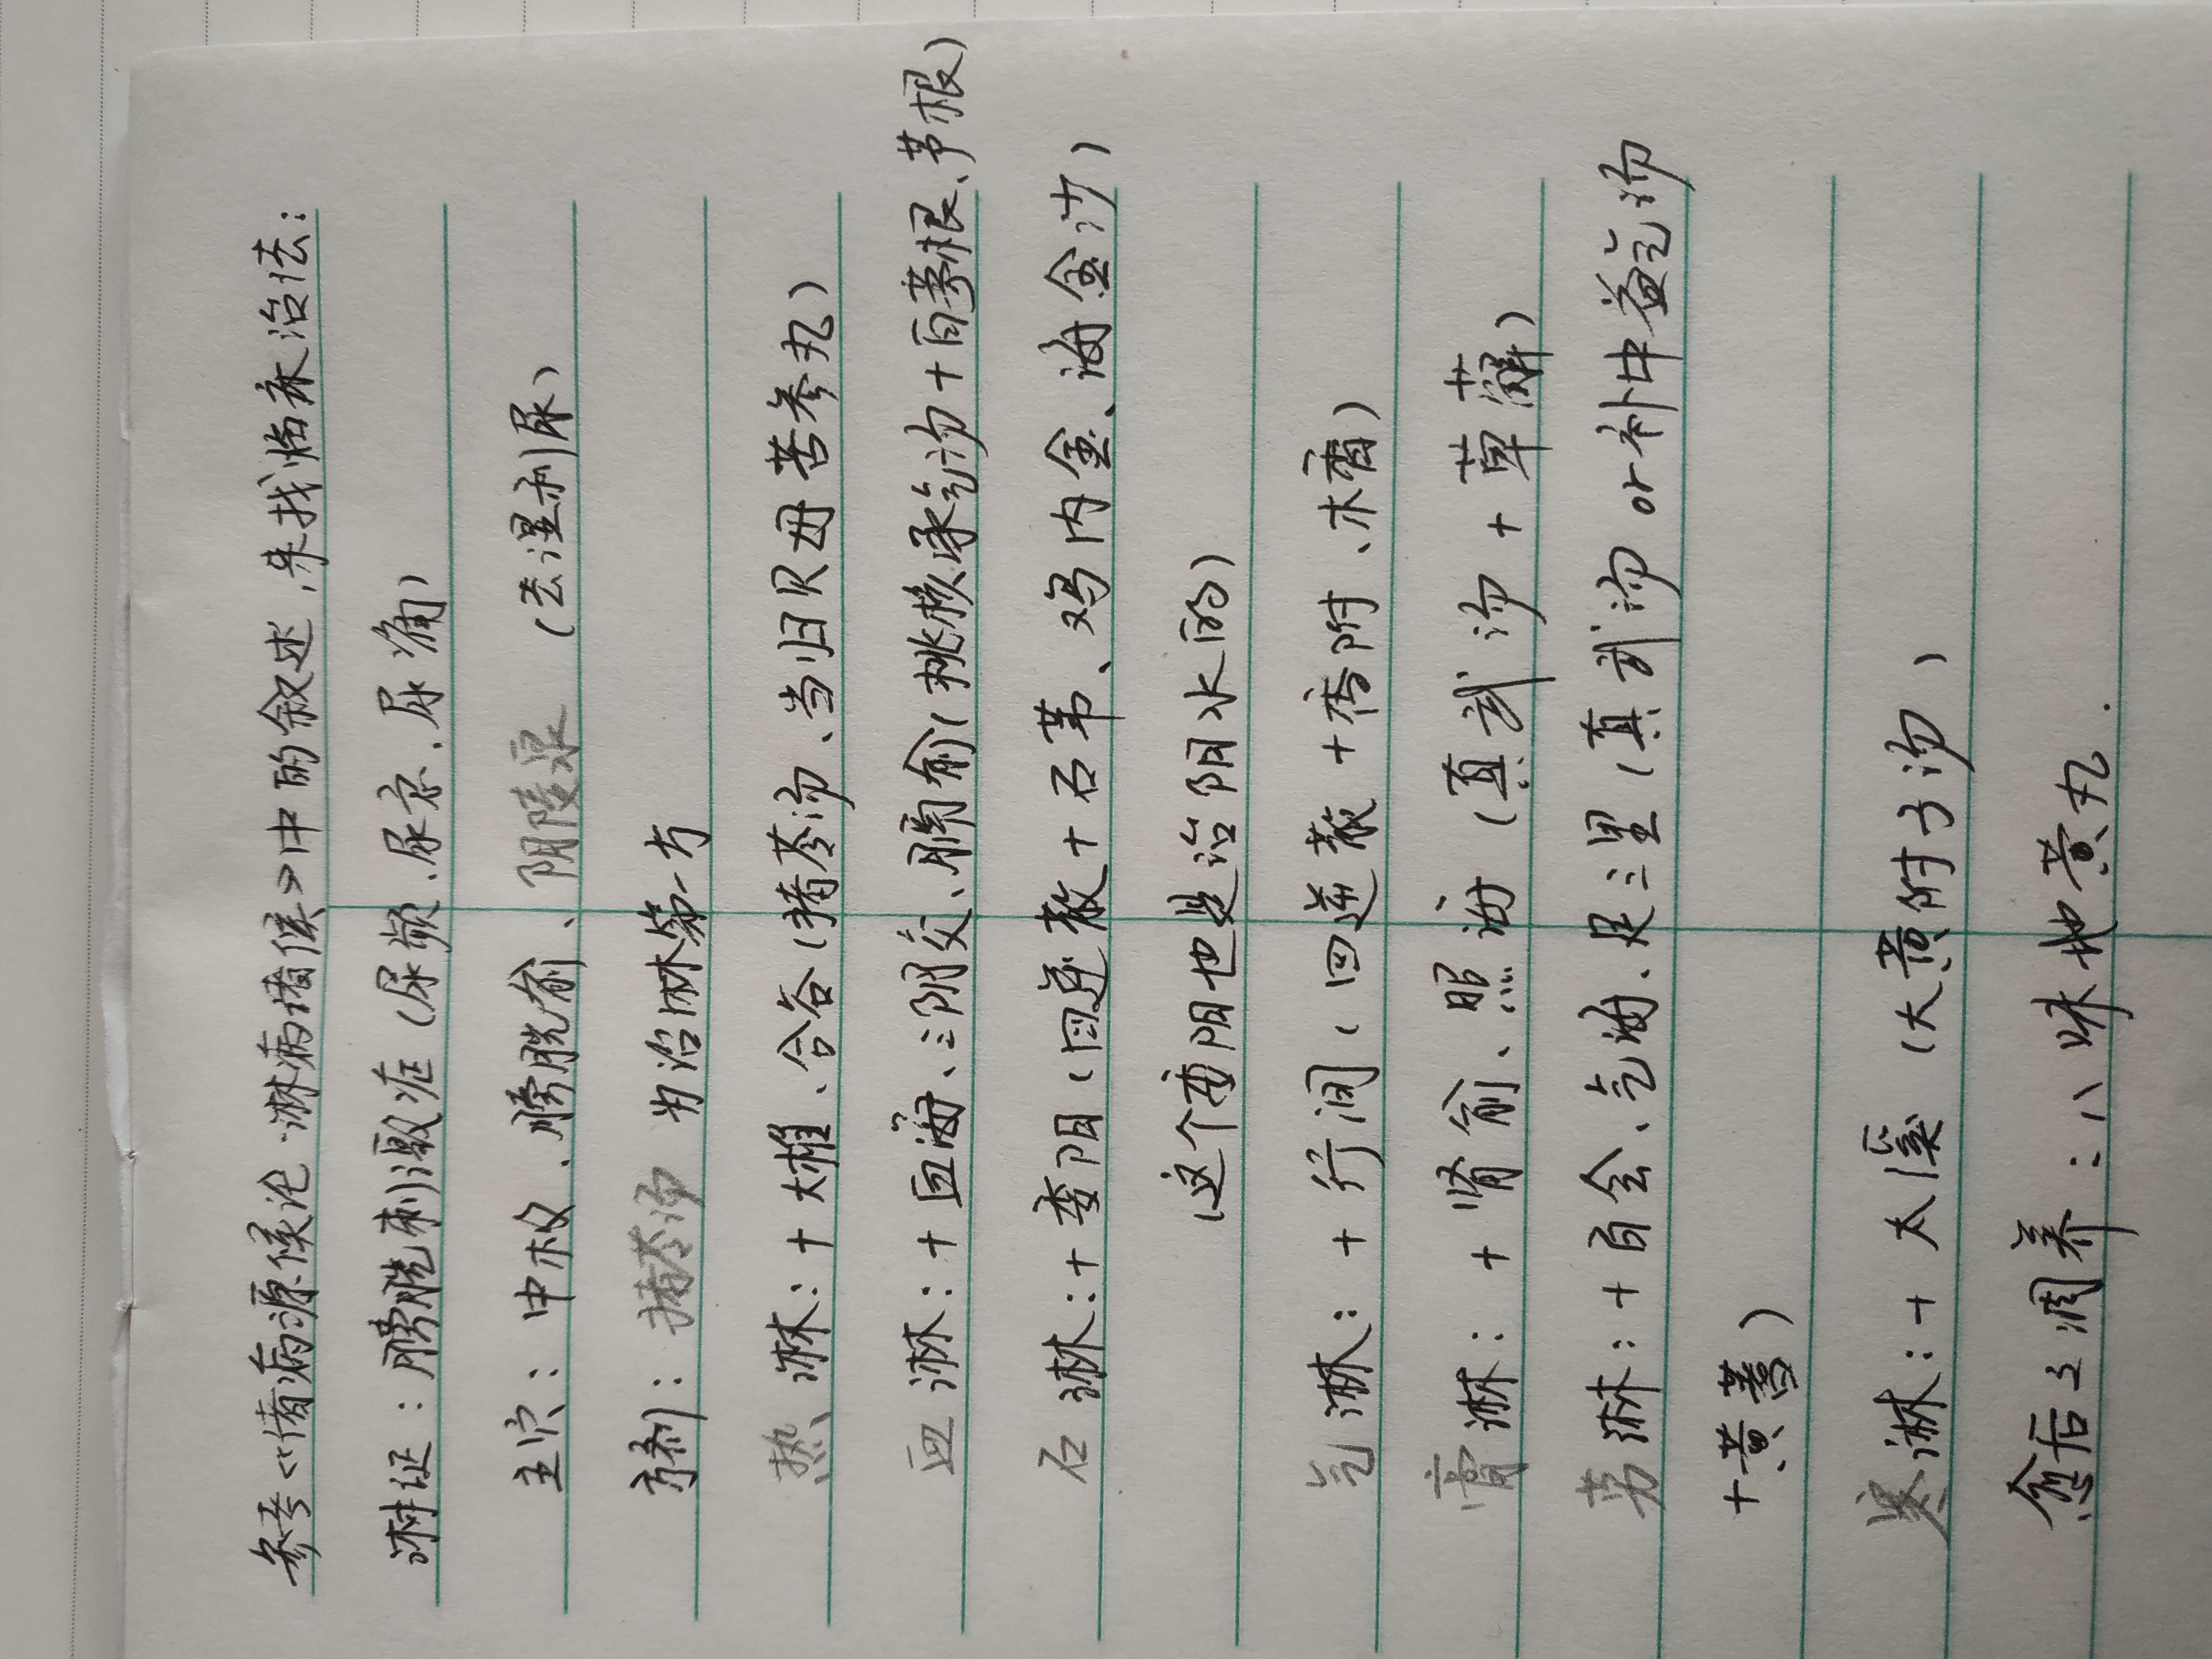 参考《诸病源候论·淋病诸侯》中的叙述,来找临床治法:
淋证:膀胱刺激症(尿频、尿急、尿痛)
主穴:中极、膀胱俞、阴陵泉(去湿利尿)
方剂:猪苓汤 为治淋第一方
热 淋:+大椎、合谷(猪苓汤、当归贝母苦参丸)
血 淋:+血海、三阴交、膈俞(桃核承气汤+白茅根、芦根)
石 淋:+委阳(四逆散+石苇、鸡内金、海金沙)
(这个委阳也是治阴水的)
气淋:+行间(四逆散+香附、木香)
膏淋:+肾俞、照海(真武汤+草薢)
劳淋:+百会、气海、足三里(真武汤 or 补中益气汤
+黄芪)
寒淋:+太溪(大黄附子汤)
愈后之调养:八味地黄丸.